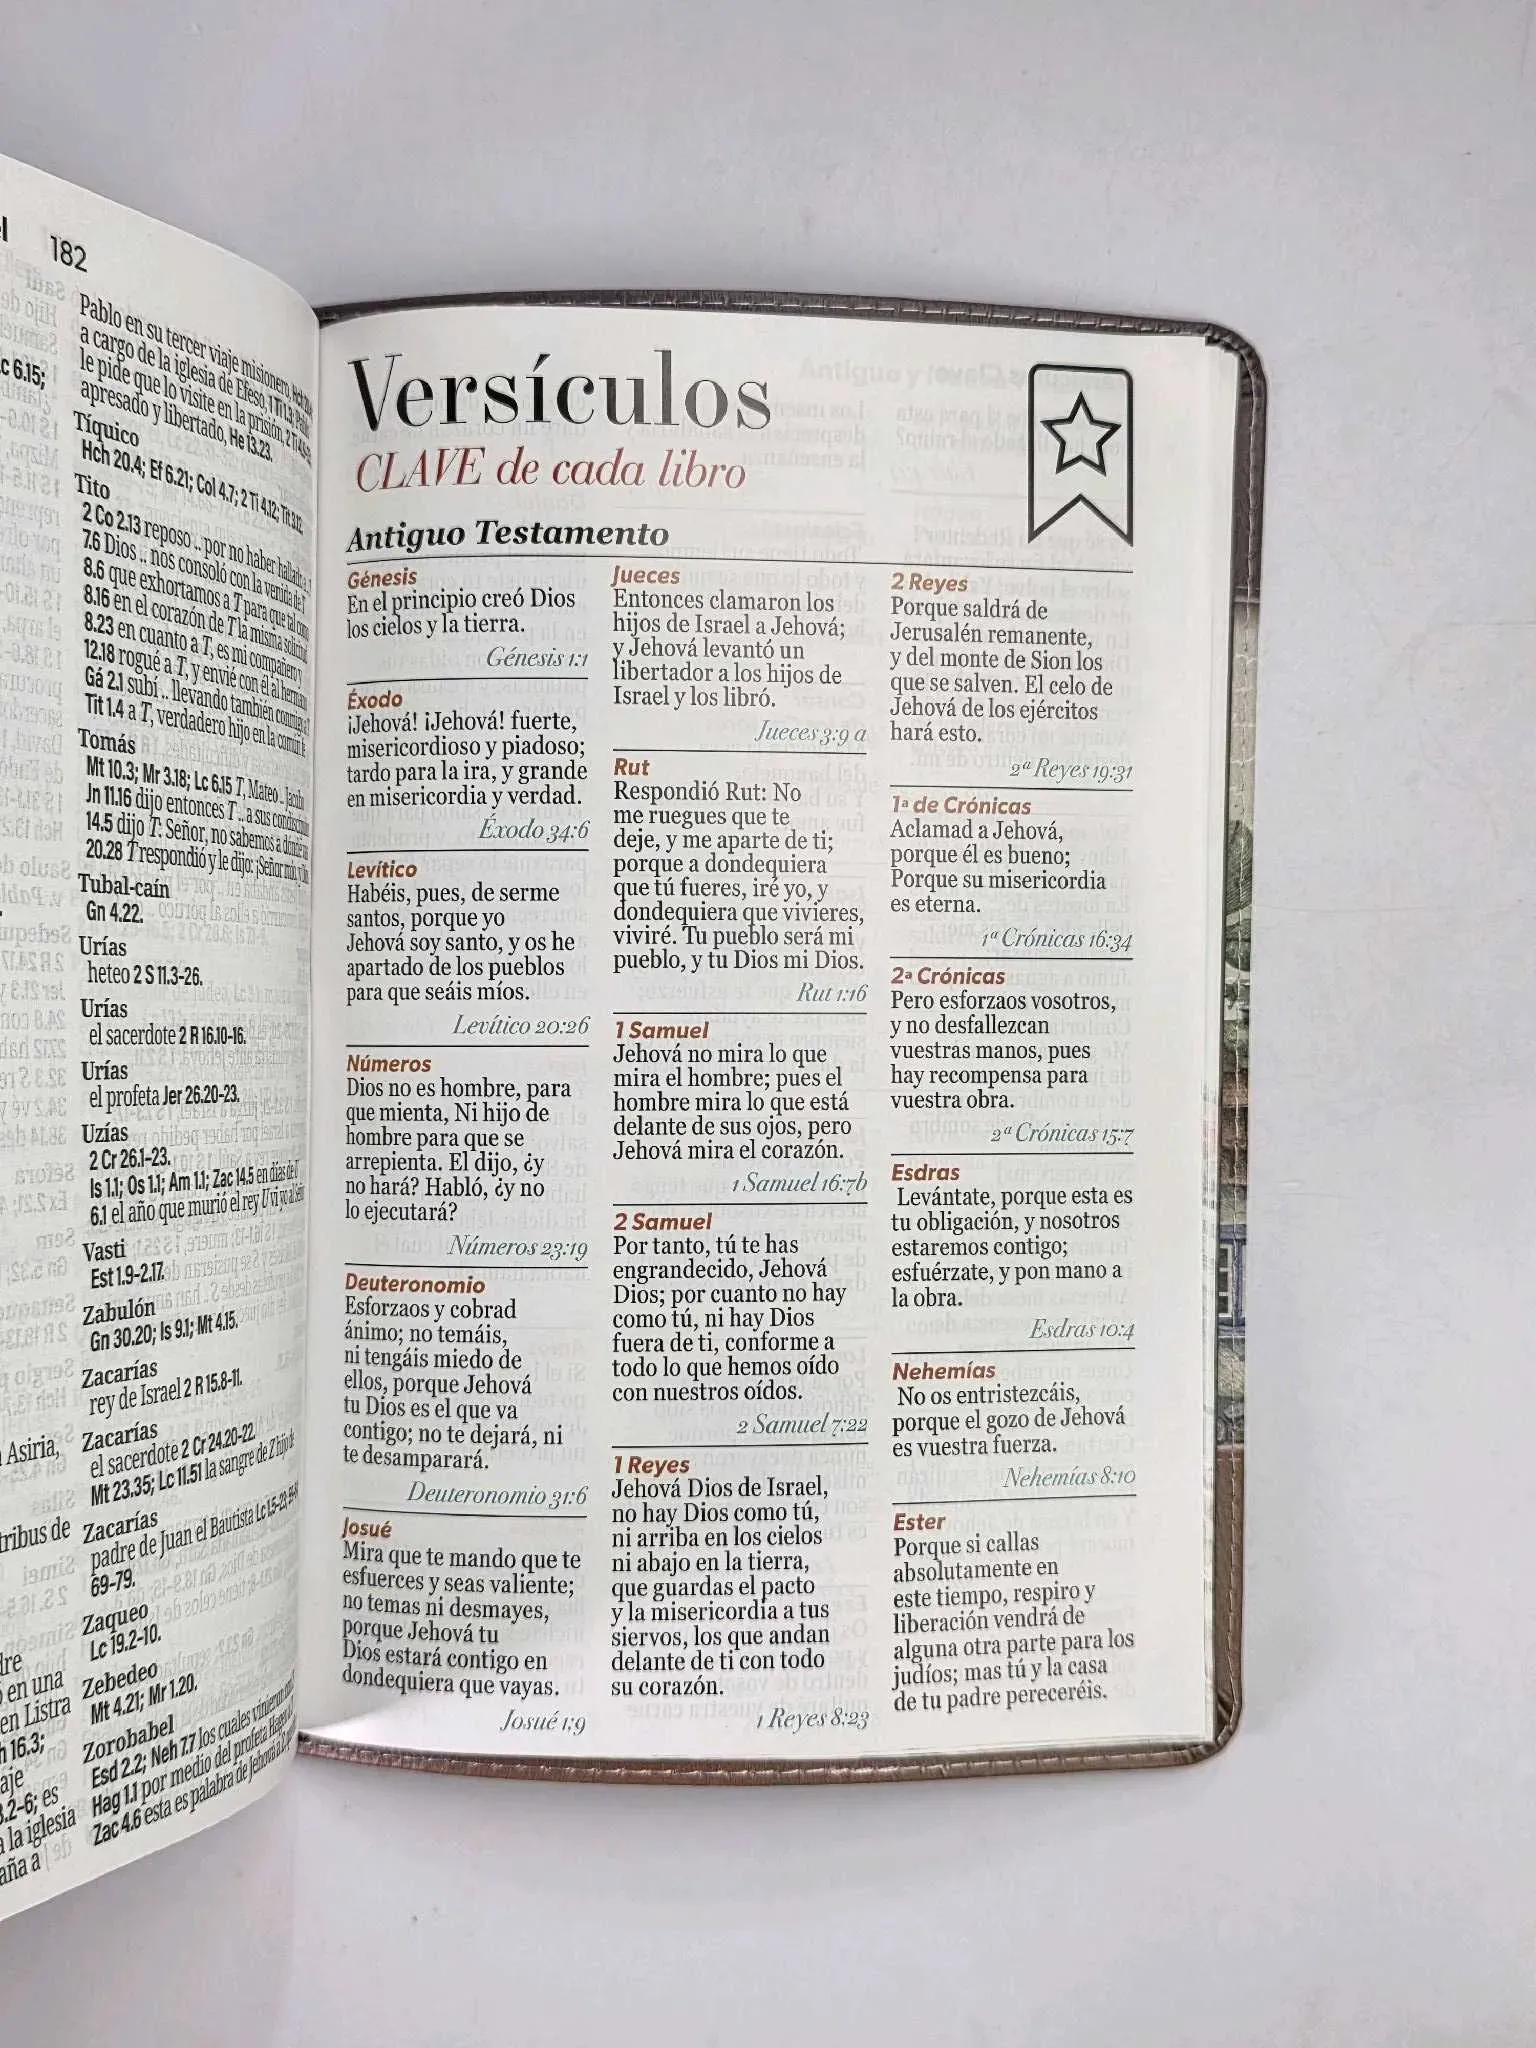 182
Pablo en su tercer viaje misionero,
a cargo de la iglesia de Efeso, 1 Ti 1.3; Pablo
le pide que lo visite en la prisión,
apresado y libertado, He 13.23.
Tíquico
Hch 20.4; Ef 6.21; Col 4.7; 2 Ti 4.12; Tit 3.12.
Tito
2 Co 2.13 reposo .. por no haber hallado a
7.6 Dios .. nos consoló con la venida de T
8.6 que exhortamos a T para que tal como
8.16 en el corazón de T la misma solicitud
8.23 en cuanto a T, es mi compañero y
12.18 rogué a T, y envié con él al hermano
Gá 2.1 subí .. llevando también conmigo a T
Tit 1.4 a T, verdadero hijo en la común fe
Tomás
Mt 10.3; Mr 3.18; Lc 6.15 T, Mateo .. Jacobo
Jn 11.16 dijo entonces T .. a sus condiscípulos
14.5 dijo T: Señor, no sabemos a dónde
20.28 T respondió y le dijo: ¡Señor mío, y
Tubal-caín
Gn 4.22.
Urías
heteo 2 S 11.3-26.
Urías
el sacerdote 2 R 16.10-16.
Urías
el profeta Jer 26.20-23.
Uzías
2 Cr 26.1-23.
Is 1.1; Os 1.1; Am 1.1; Zac 14.5 en días de U
6.1 el año que murió el rey U vi yo al Señor
Vasti
Est 1.9-2.17.
Zabulón
Gn 30.20; Is 9.1; Mt 4.15.
Zacarías
rey de Israel 2 R 15.8-11.
Zacarías
el sacerdote 2 Cr 24.20-22.
Mt 23.35; Lc 11.51 la sangre de Z hijo de
Zacarías
padre de Juan el Bautista Lc 1.5-23,
69-79.
Zaqueo
Lc 19.2-10.
Zebedeo
Mt 4.21; Mr 1.20.
Zorobabel
Esd 2.2; Neh 7.7 los cuales vinieron con
Hag 1.1 por medio del profeta Hageo a
Zac 4.6 esta es palabra de Jehová a Z
Versículos
CLAVE de cada libro
Antiguo Testamento
Génesis
En el principio creó Dios
los cielos y la tierra.
Génesis 1:1
Éxodo
¡Jehová! ¡Jehová! fuerte,
misericordioso y piadoso;
tardo para la ira, y grande
en misericordia y verdad.
Éxodo 34:6
Levítico
Habéis, pues, de serme
santos, porque yo
Jehová soy santo, y os he
apartado de los pueblos
para que seáis míos.
Levítico 20:26
Números
Dios no es hombre, para
que mienta, Ni hijo de
hombre para que se
arrepienta. El dijo, ¿y
no hará? Habló, ¿y no
lo ejecutará?
Números 23:19
Deuteronomio
Esforzaos y cobrad
ánimo; no temáis,
ni tengáis miedo de
ellos, porque Jehová
tu Dios es el que va
contigo; no te dejará, ni
te desamparará.
Deuteronomio 31:6
Josué
Mira que te mando que te
esfuerces y seas valiente;
no temas ni desmayes,
porque Jehová tu
Dios estará contigo en
dondequiera que vayas.
Josué 1:9
Jueces
Entonces clamaron los
hijos de Israel a Jehová;
y Jehová levantó un
libertador a los hijos de
Israel y los libró.
Jueces 3:9 a
Rut
Respondió Rut: No
me ruegues que te
deje, y me aparte de ti;
porque a dondequiera
que tú fueres, iré yo, y
dondequiera que vivieres,
viviré. Tu pueblo será mi
pueblo, y tu Dios mi Dios.
Rut 1:16
1 Samuel
Jehová no mira lo que
mira el hombre; pues el
hombre mira lo que está
delante de sus ojos, pero
Jehová mira el corazón.
1 Samuel 16:7b
2 Samuel
Por tanto, tú te has
engrandecido, Jehová
Dios; por cuanto no hay
como tú, ni hay Dios
fuera de ti, conforme a
todo lo que hemos oído
con nuestros oídos.
2 Samuel 7:22
1 Reyes
Jehová Dios de Israel,
no hay Dios como tú,
ni arriba en los cielos
ni abajo en la tierra,
que guardas el pacto
y la misericordia a tus
siervos, los que andan
delante de ti con todo
su corazón.
1 Reyes 8:23
2 Reyes
Porque saldrá de
Jerusalén remanente,
y del monte de Sion los
que se salven. El celo de
Jehová de los ejércitos
hará esto.
2ª Reyes 19:31
1ª de Crónicas
Aclamad a Jehová,
porque él es bueno;
Porque su misericordia
es eterna.
1ª Crónicas 16:34
2ª Crónicas
Pero esforzaos vosotros,
y no desfallezcan
vuestras manos, pues
hay recompensa para
vuestra obra.
2ª Crónicas 15:7
Esdras
Levántate, porque esta es
tu obligación, y nosotros
estaremos contigo;
esfuérzate, y pon mano a
la obra.
Esdras 10:4
Nehemías
No os entristezcáis,
porque el gozo de Jehová
es vuestra fuerza.
Nehemías 8:10
Ester
Porque si callas
absolutamente en
este tiempo, respiro y
liberación vendrá de
alguna otra parte para los
judíos; mas tú y la casa
de tu padre pereceréis.